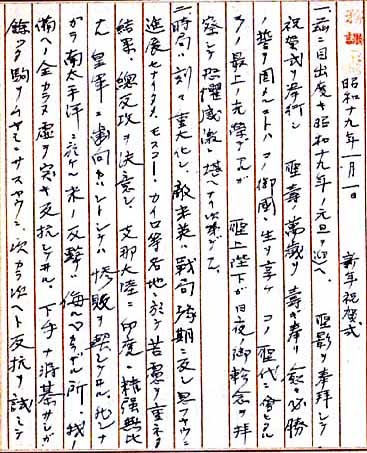 昭和十九年一月一日　新年祝賀式
一、茲ニ目出度キ昭和十九年ノ元旦ヲ迎ヘ、聖影ヲ奉拝シテ
祝賀式ヲ挙行シ　聖寿ノ萬歳ヲ寿ギ奉リ　必勝
ノ誓ヲ固メルコトハコノ御國ニ生ヲ享ケ　コノ聖代ニ會セル
モノノ最上ノ光榮デアルガ　聖上陛下ガ日夜ノ御軫念ヲ拝
察シテ恐懼感激ニ堪ヘナイ次第デアル
二、時局ハ刻々重大化シ、敵米英ハ戰局ガ豫期ニ反シ思フヤウニ
進展セナイタメ、モスコー、カイロ等各地ニ於テ苦悪ヲ重ネタ
結果、總反攻ヲ決意シ、支那大陸ニ印度ニ精強無比
ナ　皇軍ニ歯向カハントシテハ惨敗ヲ喫シテヰル、然シナ
ガラ南太平洋ニ於ケル米ノ反撃ハ侮ルベカラザル所、我ノ
備ヘノ全カラヌ虚ヲ突キ反抗シテヰル、下手ナ将棋サシガ
餘ツタ駒ヲムヤミニサスヤウニ、次カラ次ヘト反抗ヲ試ミテ